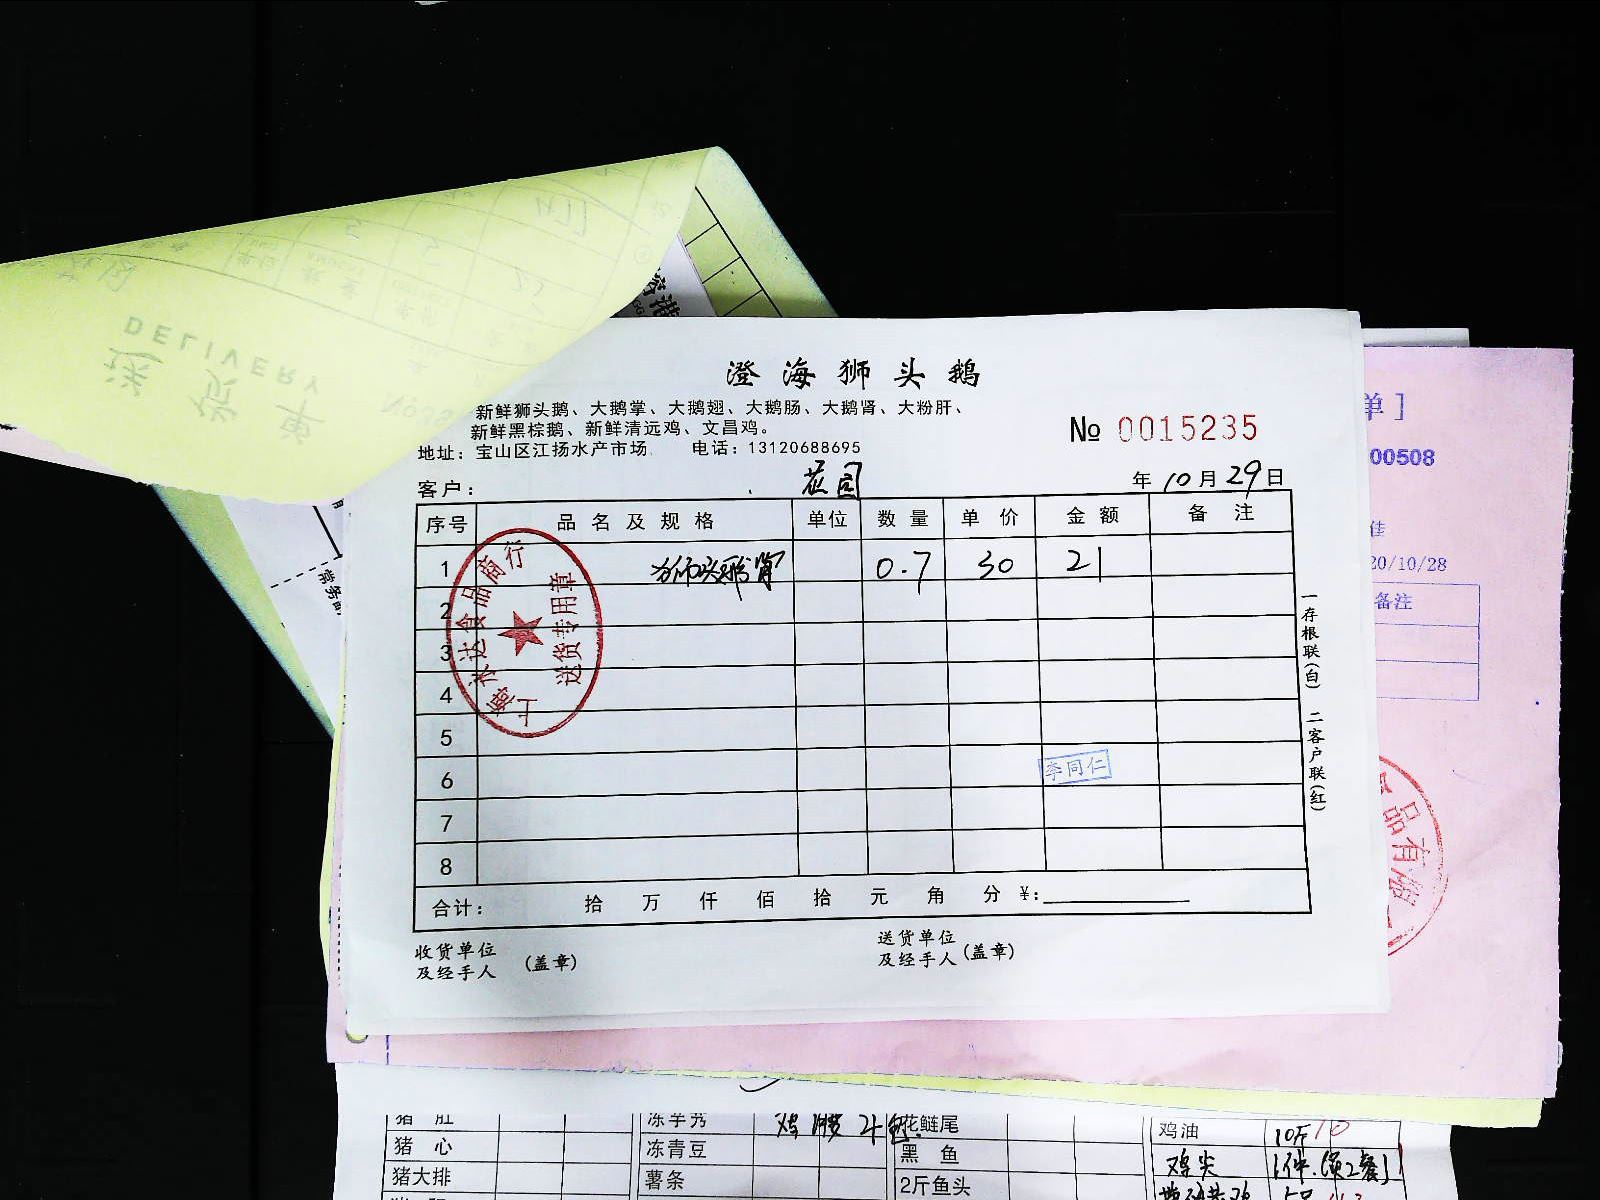 澄海狮头鹅
新鲜狮头鹅、大鹅掌、大鹅翅、大鹅肠、大鹅肾、大粉肝、
新鲜黑棕鹅、新鲜清远鸡、文昌鸡。
地址：宝山区江扬水产市场 电话：13120688695
№ 0015235
客户： 花园 年 10 月 29 日
序号 品名及规格 单位 数量 单价 金额 备注
1 狮头鹅肾 0.7 30 21
2
3
4
5
6
7
8
李同仁
送货专用章
合计： 拾 万 仟 佰 拾 元 角 分 ¥:
收货单位
及经手人 (盖章)
送货单位
及经手人 (盖章)
一存根联(白) 二客户联(红)
DELIVERY
送货单
单]
00508
佳
20/10/28
备注
猪肚
猪心
猪大排
冻青豆
薯条
花鲢尾
黑鱼
2斤鱼头
鸡油 10斤 10
鸡尖